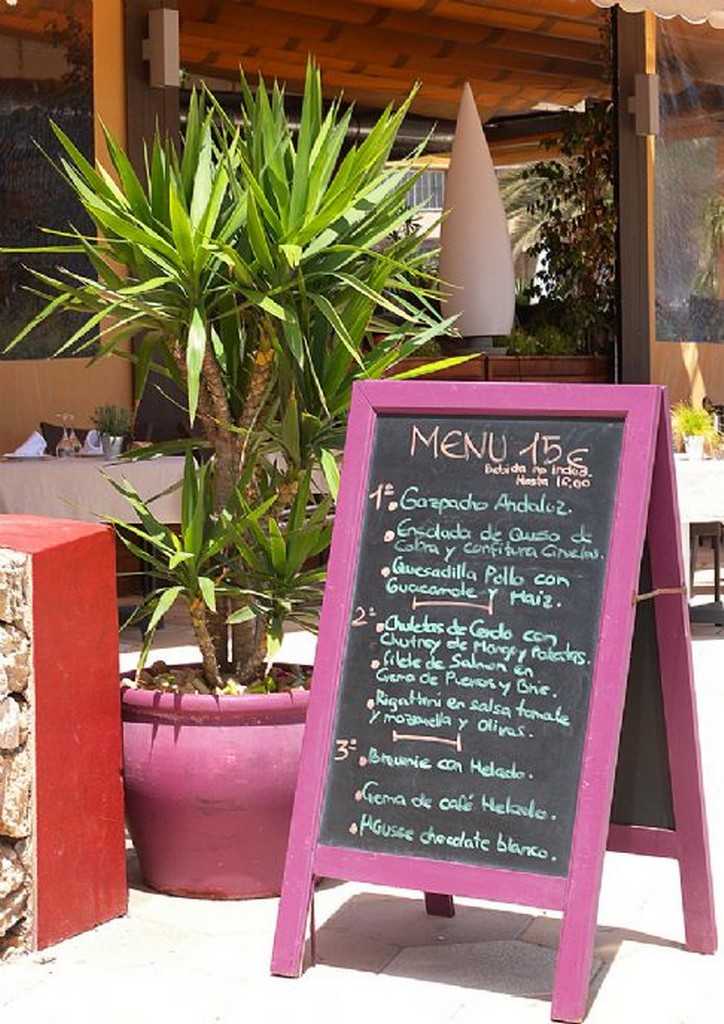 MENU 15€
Bebida no incluí.
Hasta 16:00
1º • Gazpacho Andaluz.
• Ensalada de Queso de
Cabra y confitura Ciruelas.
• Quesadilla Pollo con
Guacamole y Maiz.
2º • Chuletas de Cerdo con
Chutney de Mango y Patatas.
• Filete de Salmon en
Crema de Puerros y Brie.
• Rigattini en salsa tomate
y mozzarella y Olivas.
3º • Brownie con Helado.
• Crema de café Helado.
• Mousse chocolate blanco.